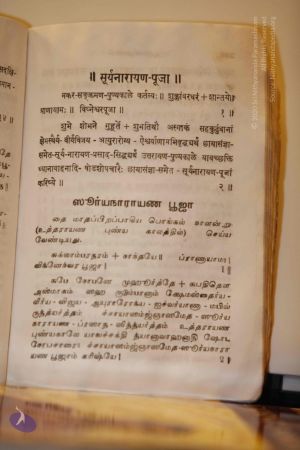 ॥ सूर्यनारायण-पूजा ॥
मकर-सङ्क्रमण-पुण्यकाले कर्तव्यः। शुक्लांबरधरं + शान्तये।
प्राणायामः। विघ्नेश्वरपूजा। १ ॥
शुभे शोभने मुहूर्ते + शुभतिथौ अस्माकं सहकुटुंबानां
क्षेमस्थैर्य-वीर्यविजय-आयुरारोग्य-ऐश्वर्याणामभिवृद्ध्यर्थं छायासंज्ञा-
समेत-सूर्यनारायण-प्रसाद-सिद्ध्यर्थं उत्तरायण-पुण्यकाले यावच्छक्ति
ध्यानावाहनादि-षोडशोपचारैः छायासंज्ञा-समेत-सूर्यनारायण-पूजां
करिष्ये। २ ॥
ஸூர்யநாராயண பூஜா
தை மாதப்பிறப்பாகிய பொங்கல் நாளன்று
(உத்தராயண புண்ய காலத்தில்) செய்ய
வேண்டியது.
சுக்லாம்பரதரம் + சாந்தயே। ப்ராணாயாம:।
விக்னேச்வர பூஜா। 1॥
சுபே சோபனே முஹூர்த்தே + சுபதிதௌ
அஸ்மாகம் ஸஹ குடும்பானாம் க்ஷேமஸ்தைர்ய-
வீர்ய-விஜய-ஆயுராரோக்ய-ஐச்வர்யாணாம்
சாயாஸம்ஜ்ஞாஸமேத-ஸூர்ய
நாராயண-ப்ரஸாத-ஸித்த்யர்த்தம் உத்தராயண
புண்யகாலே யாவச்சக்தி த்யானாவாஹனாதி ஷோட
சோபசாரை: ச்சாயாஸம்ஜ்ஞாஸமேத-ஸூர்யநாரா
யண பூஜாம் கரிஷ்யே। 2॥